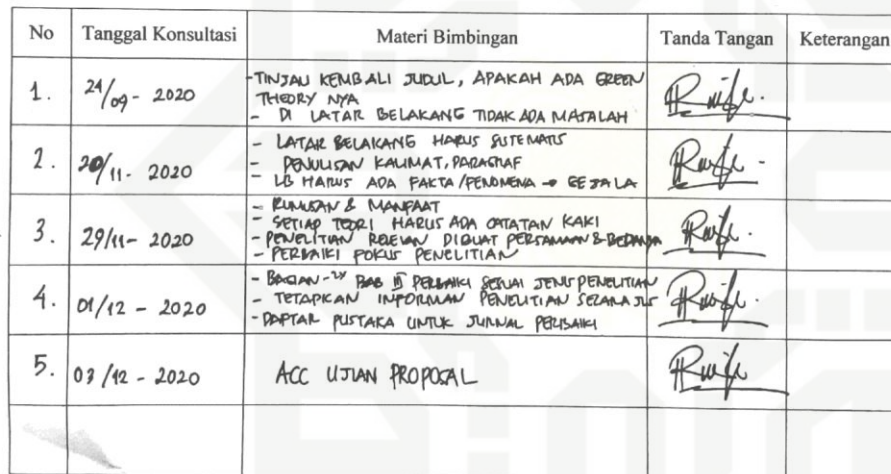 No Tanggal Konsultasi Materi Bimbingan Tanda Tangan Keterangan
1. 24/09 - 2020
- TINJAU KEMBALI JUDUL, APAKAH ADA GREEN
THEORY NYA
- DI LATAR BELAKANG TIDAK ADA MASALAH
2. 20/11 - 2020
- LATAR BELAKANG HARUS SISTEMATIS
- PENULISAN KALIMAT, PARAGRAF
- LB HARUS ADA FAKTA/FENOMENA → GEJALA
3. 29/11 - 2020
- RUMUSAN & MANFAAT
- SETIAP TEORI HARUS ADA CATATAN KAKI
- PENELITIAN RELEVAN DIBUAT PERSAMAAN & BEDANYA
- PERBAIKI FOKUS PENELITIAN
4. 01/12 - 2020
- BAGIAN-2x BAB III PERBAIKI SESUAI JENIS PENELITIAN
- TETAPKAN INFORMAN PENELITIAN SECARA
- DAFTAR PUSTAKA UNTUK JURNAL PERBAIKI
5. 03/12 - 2020
ACC UJIAN PROPOSAL